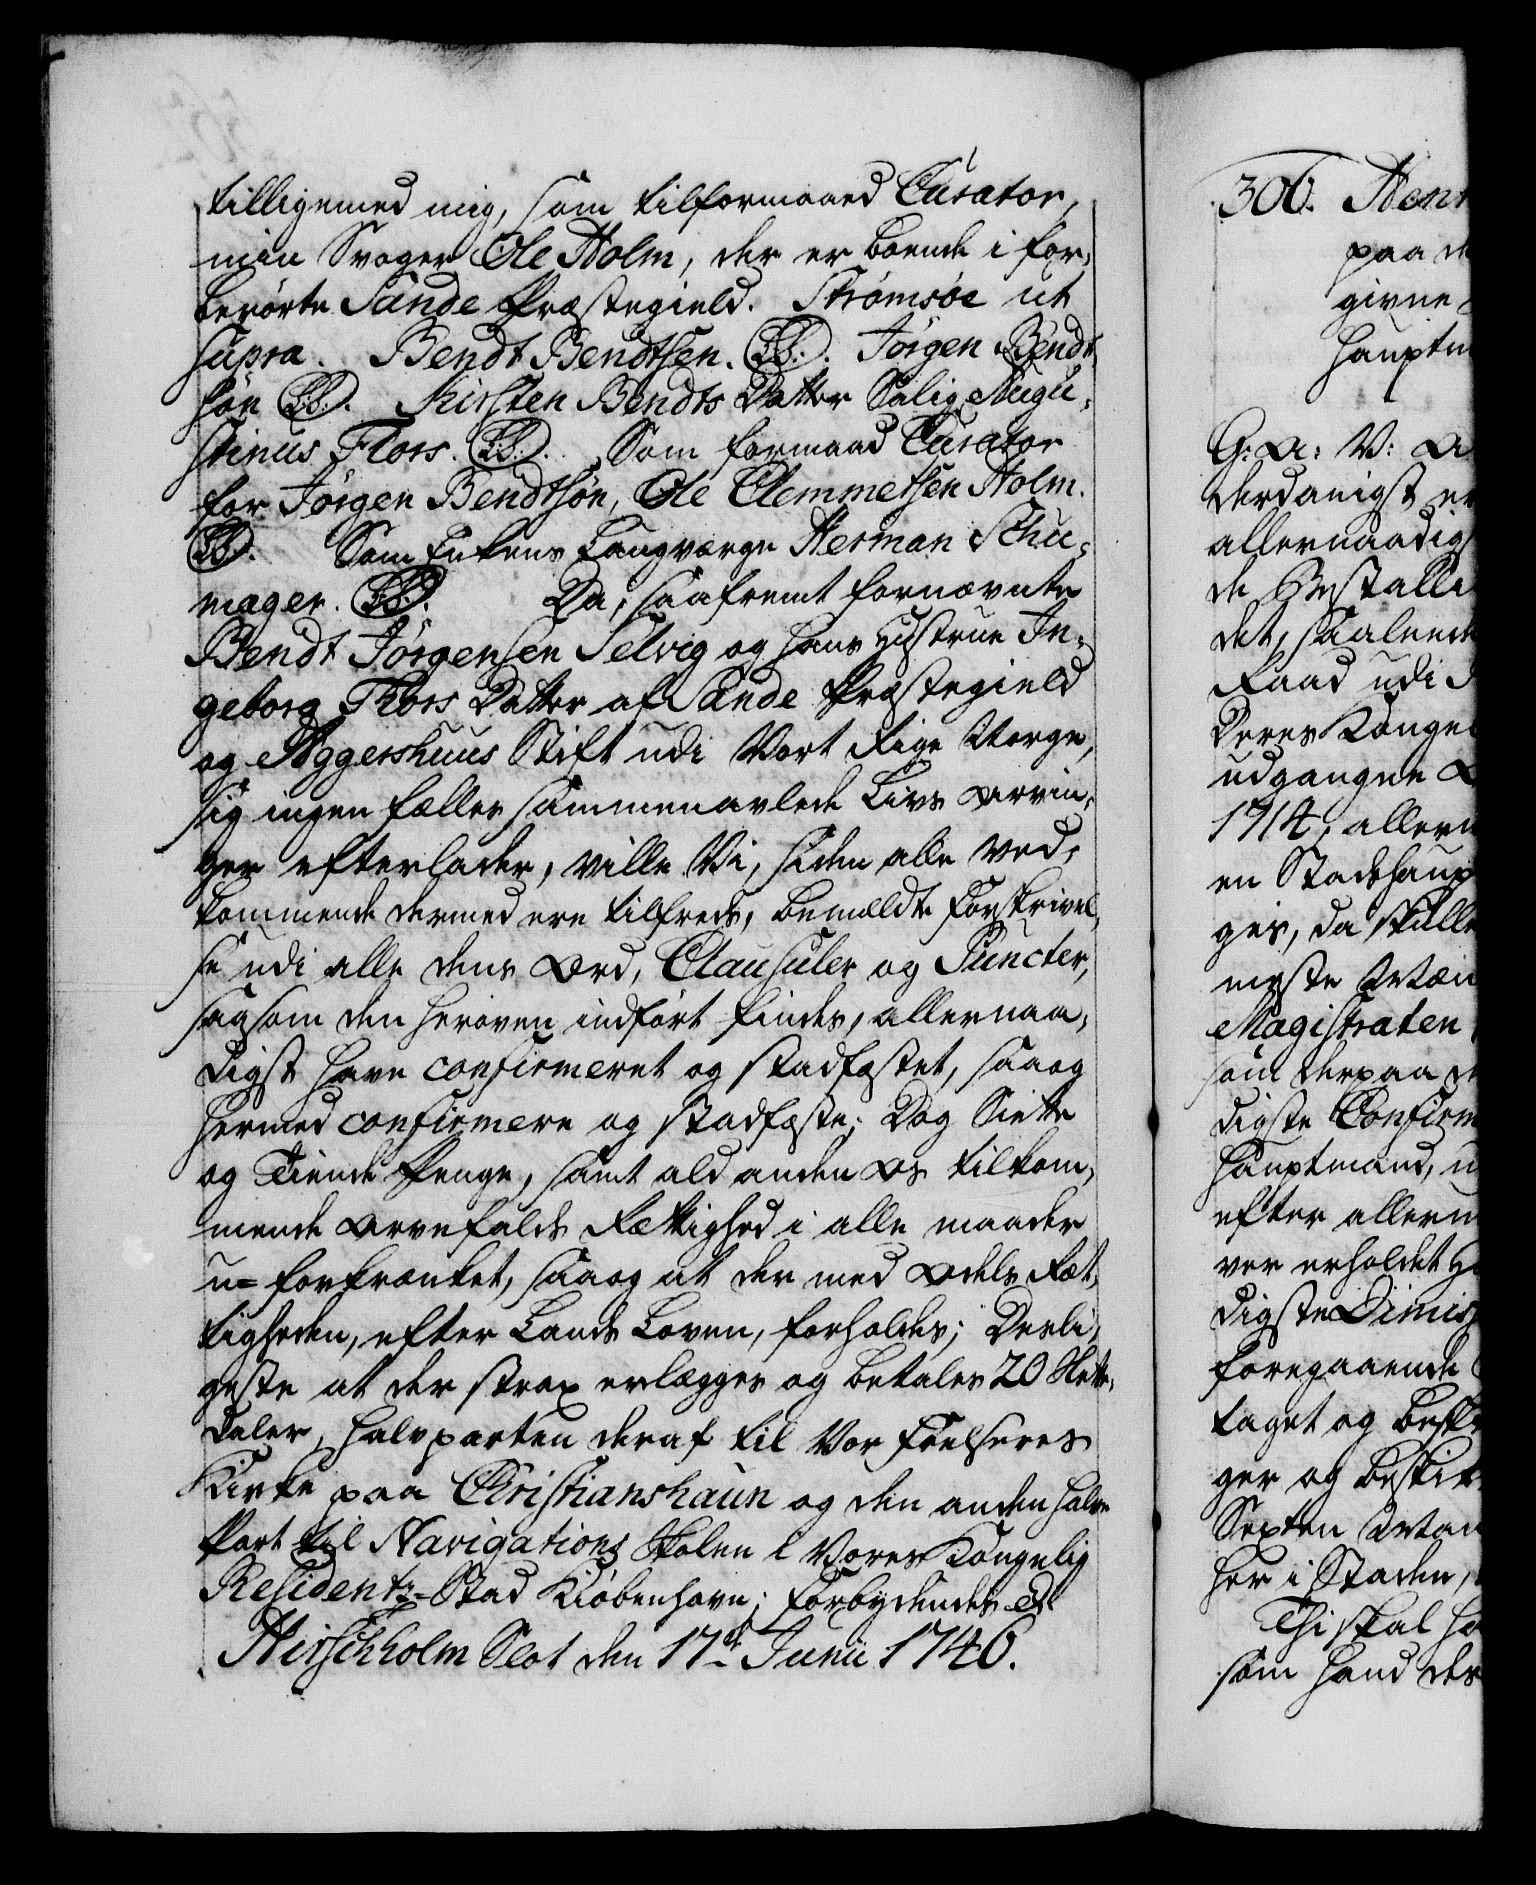 tilligemed mig, som tilformaaed Curator,
min Svoger Ole Holm, der er boende i for-
berörte Sande Præstegield. Strømsöe ut
supra. Bendt Bendtsen. (LS.). Jörgen Bendt
sön (LS.). Kirsten Bendts Datter Salig Augu-
stinus Flors. (LS.). Som formaad Curator
for Jörgen Bendtsön, Ole Clemmetsen Holm.
(LS.). Som Enkens Laugværge Herman Schu-
mager. (LS.). Da, saafremt fornævnte
Bendt Jörgensen Selvig og hans Hustrue In-
geborg Flors Datter af Sande Præstegield
og Aggershuus Stift udi Vort Rige Norge,
sig ingen fælles sammenavlede Livs Arvin-
ger efterlader, ville Vi, siden alle ved-
kommende dermed ere tilfreds, bemældte Forskrivel-
se udi alle dens Ord, Clausuler og Puncter,
saasom den heroven indfört findes, allernaa-
digst have confirmeret og stadfæstet, saaog
hermed confirmere og stadfæste; Dog Siette
og Tiende Penge, samt ald anden Os tilkom-
mende Arvefalds Rættighed i alle maader
u=forkrænket, saaog at der med Odels Ræt-
tigheden, efter Lands Loven, forholdes; Desli-
geste at der strax erlægges og betales 20 Slette-
daler, halvparten deraf til Vor Frelseres
Kirke paa Christianshaun og den anden halve
Part til Navigations Skolen i Vores Kongelig
Residentz-Stad Kiöbenhavn; Forbydendes &c.
Hirschholm Slot den 17de Junii 1746.
306. Hen
paa de
givne
Hauptm
G: A: V: A
derdanigst er
allernaadigs
de Bestalli
det, saaleede
Raad udi
Deres Kongel
udgangne
1714, allern
en Stadshaup
ges, da skulle
meste
Magistraten
som derpaa de
digste Confirm
Hauptmand,
efter allern
ver erholdet
digste Dimis
foregaaende
taget og besk
ger og beskik
Sexten
her i Staden,
Thi skal ha
som hand der